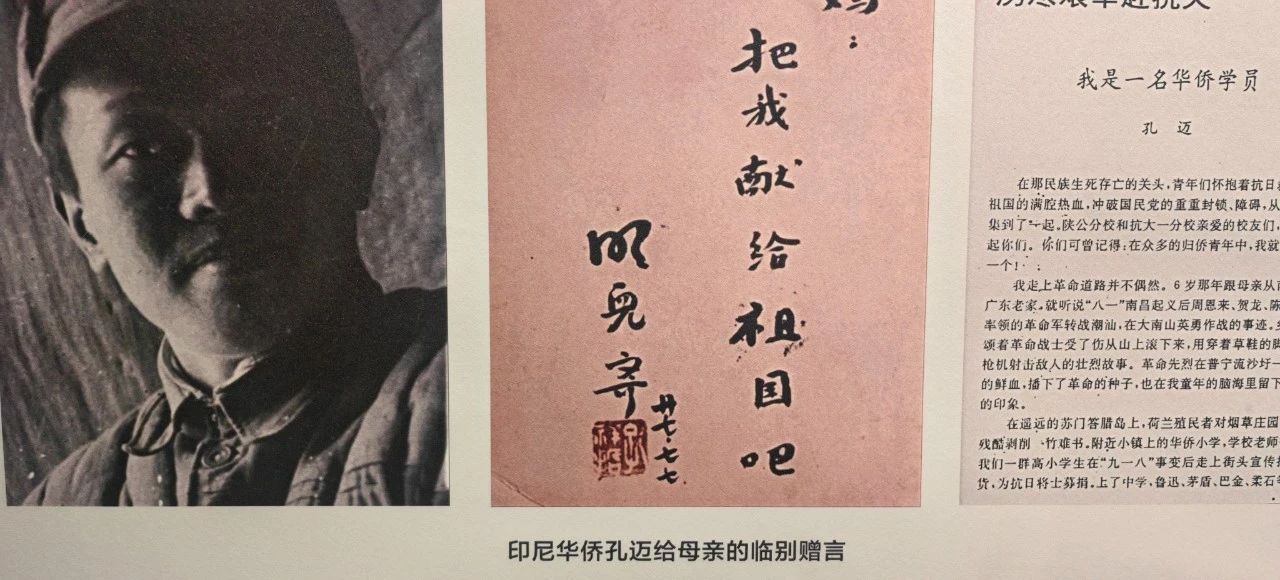 妈：
把我献给祖国吧
明兒寄
廿七·七·七·
我是一名华侨学员
孔 迈
在那民族生死存亡的关头，青年们怀抱着抗日
祖国的满腔热血，冲破国民党的重重封锁、障碍，从
集到了一起。陕公分校和抗大一分校亲爱的校友们，
起你们。你们可曾记得：在众多的归侨青年中，我就
一个！
我走上革命道路并不偶然。6 岁那年跟母亲从
广东老家，就听说“八一”南昌起义后周恩来、贺龙、陈
率领的革命军转战潮汕，在大南山英勇作战的事迹。
颂着革命战士受了伤从山上滚下来，用穿着草鞋的脚
枪机射击敌人的壮烈故事。革命先烈在普宁流沙圩一
的鲜血，播下了革命的种子，也在我童年的脑海里留下
的印象。
在遥远的苏门答腊岛上，荷兰殖民者对烟草庄园
残酷剥削 竹难书。附近小镇上的华侨小学，学校老师
我们一群高小学生在“九一八”事变后走上街头宣传
货，为抗日将士募捐。上了中学，鲁迅、茅盾、巴金、柔石
印尼华侨孔迈给母亲的临别赠言